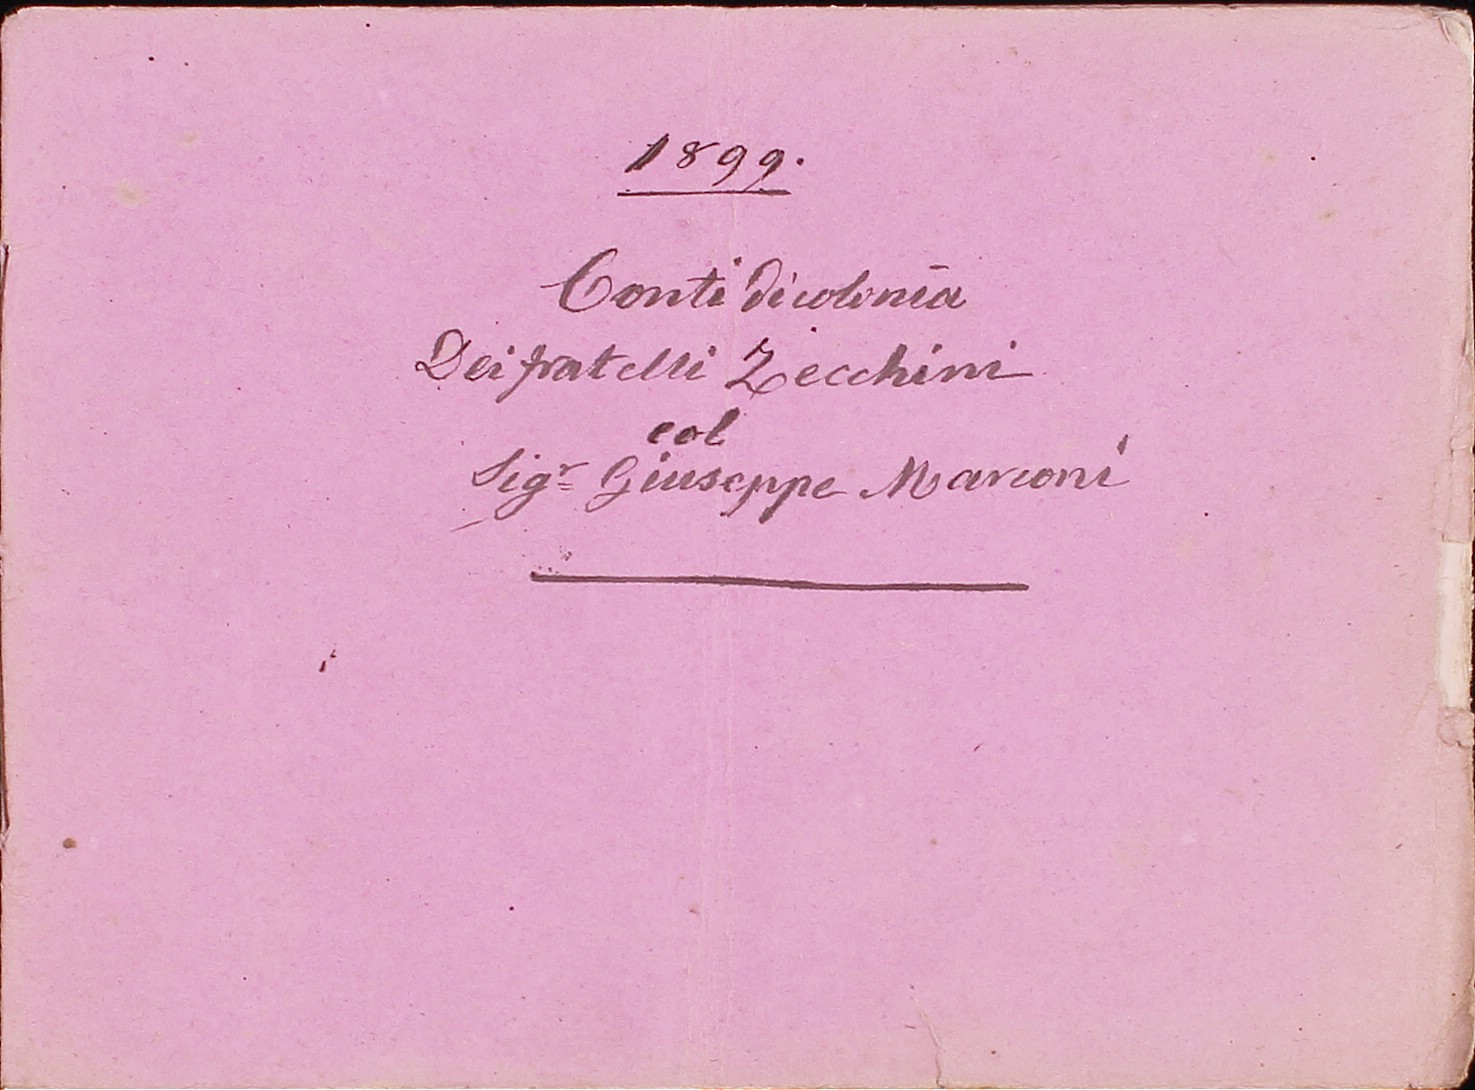 1899.
Conti di colonia
Dei fratelli Zecchini
col
Sigr Giuseppe Marconi